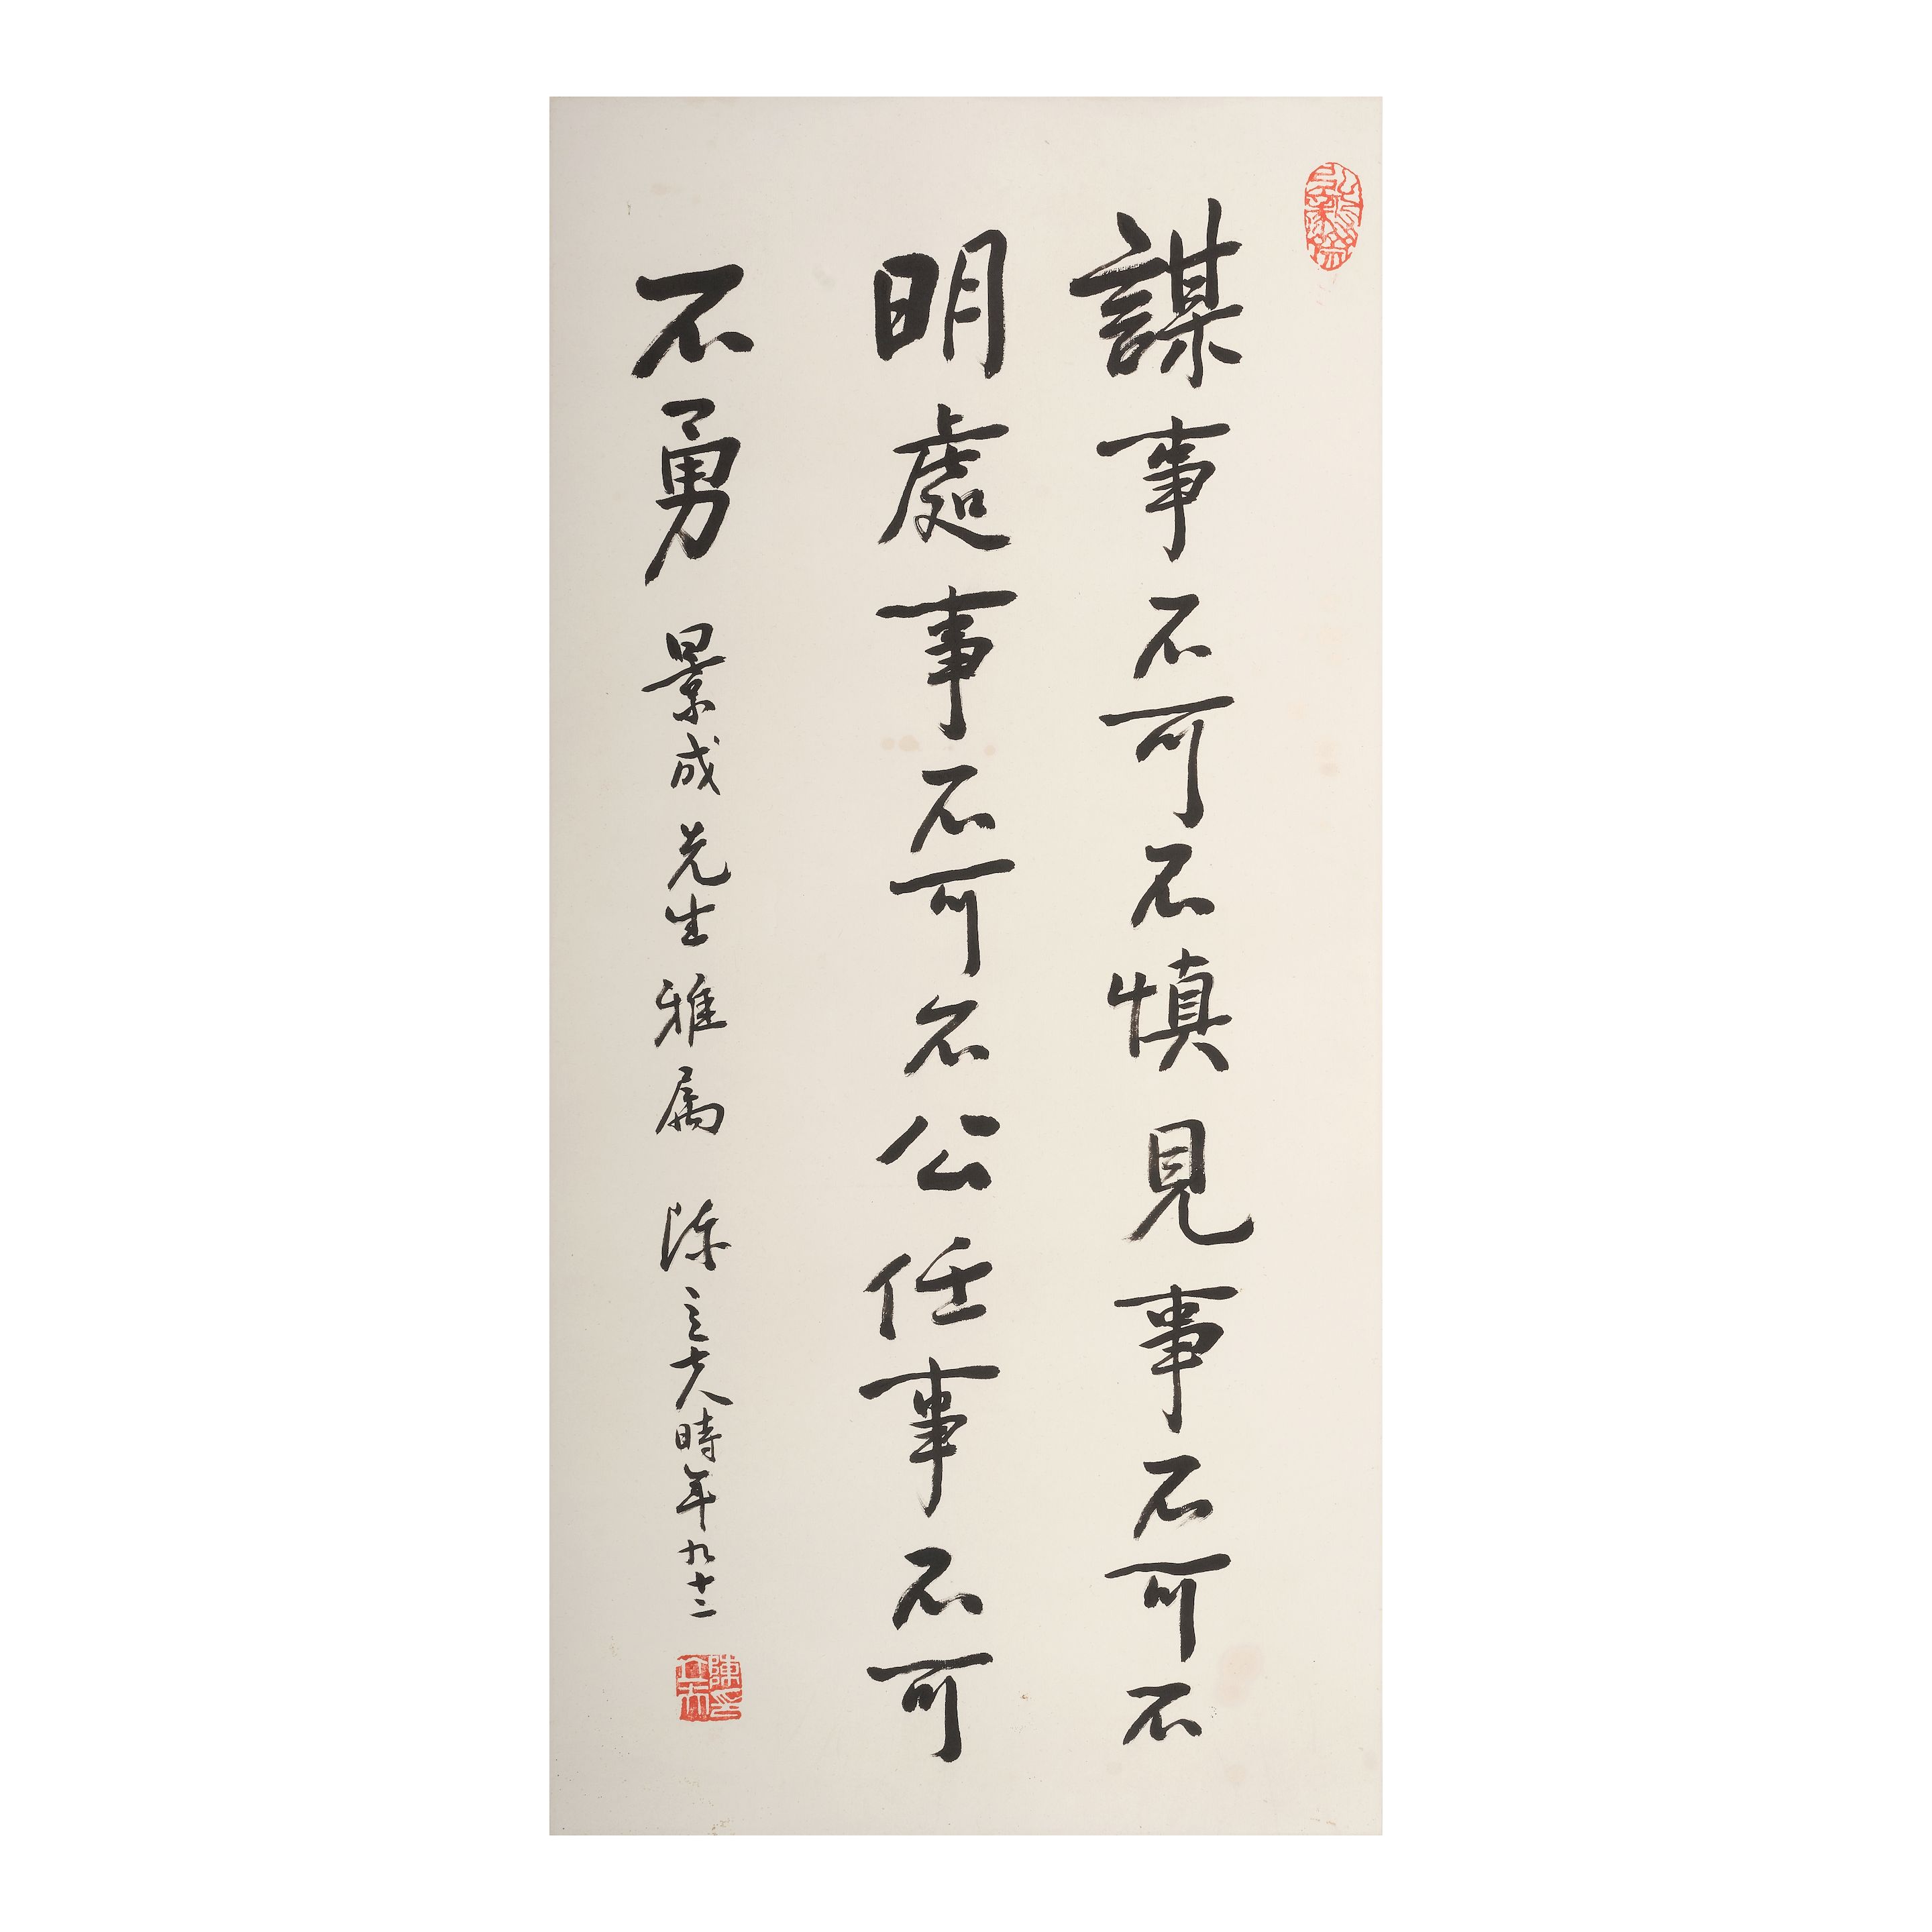 謀事不可不慎見事不可不
明處事不可不公任事不可
不勇 景成先生雅属 陳立夫時年九十二
陳立夫印